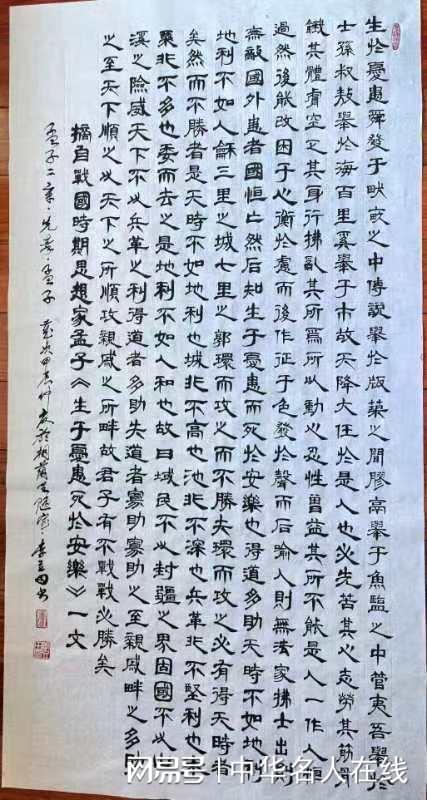 生於憂患舜發于畎畝之中傅說舉於版築之間膠鬲舉于魚鹽之中管夷吾舉於
士孫叔敖舉於海百里奚舉于市故天降大任於是人也必先苦其心志勞其筋骨
餓其體膚空乏其身行拂亂其所爲所以動心忍性曾益其所不能是人一作人恒
過然後能改困于心衡於慮而後作征于色發於聲而后喻入則無法家拂士出則
無敵國外患者國恒亡然后知生于憂患而死於安樂也得道多助天時不如地利
地利不如人和三里之城七里之郭環而攻之而不勝夫環而攻之必有得天時者
矣然而不勝者是天時不如地利也城非不高也池非不深也兵革非不堅利也米
粟非不多也委而去之是地利不如人和也故曰域民不以封疆之界固國不以山
溪之險威天下不以兵革之利得道者多助失道者寡助寡助之至親戚畔之多助
之至天下順之以天下之所順攻親戚之所畔故君子有不戰戰必勝矣
摘自戰國時期思想家孟子《生于憂患死於安樂》一文
孟子二章·先秦·孟子 歲次甲辰
网易号 | 中华名人在线